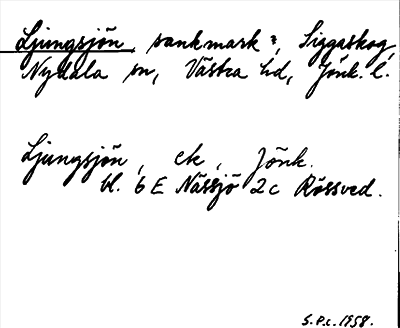 Ljungsjön, sankmark?, Siggaskog,
Nydala sn, Västra hd, Jönk. l.
Ljungsjön, ek, Jönk.
bl. 6 E Nässjö 2 c Rössved.
S.P.c. 1958.